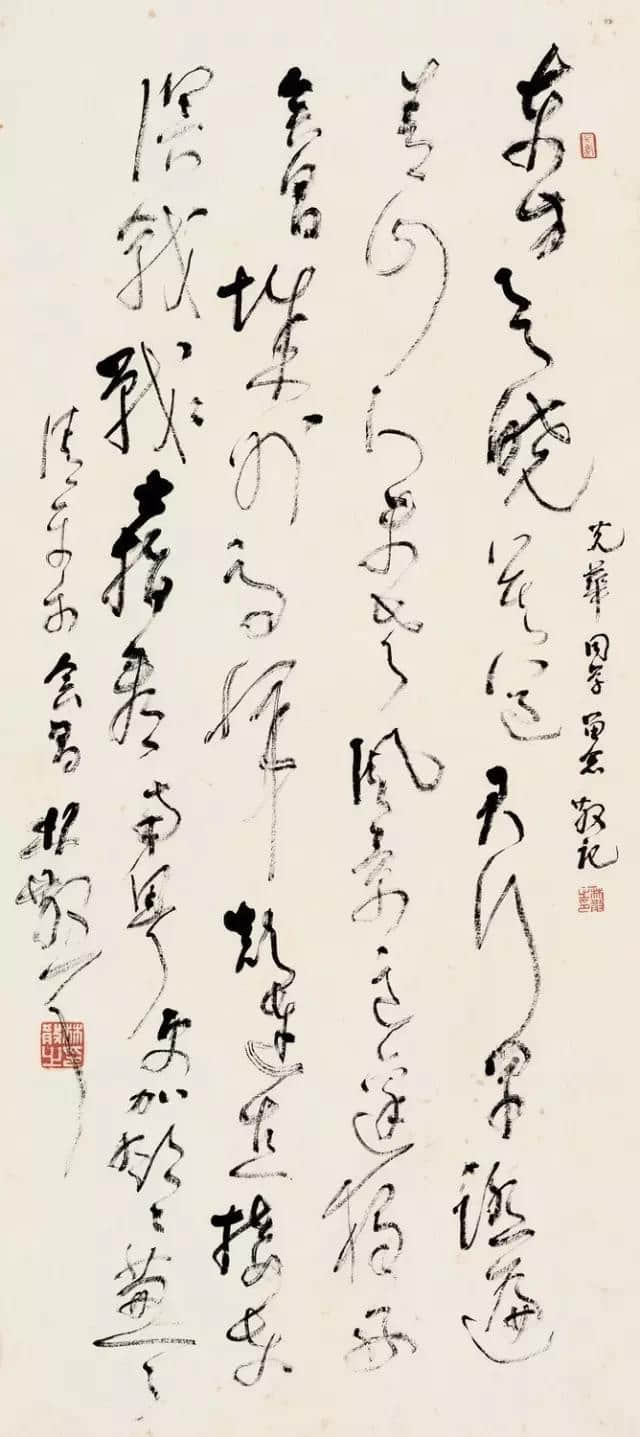 東方欲曉莫道君行早踏遍
青山人未老風景這邊獨好
會昌城外高峰顛連直接東
溟戰戰〻士指看南粤更加鬱〻葱〻
清平樂 会昌 林散耳
光華同学留念 散記
林散之印